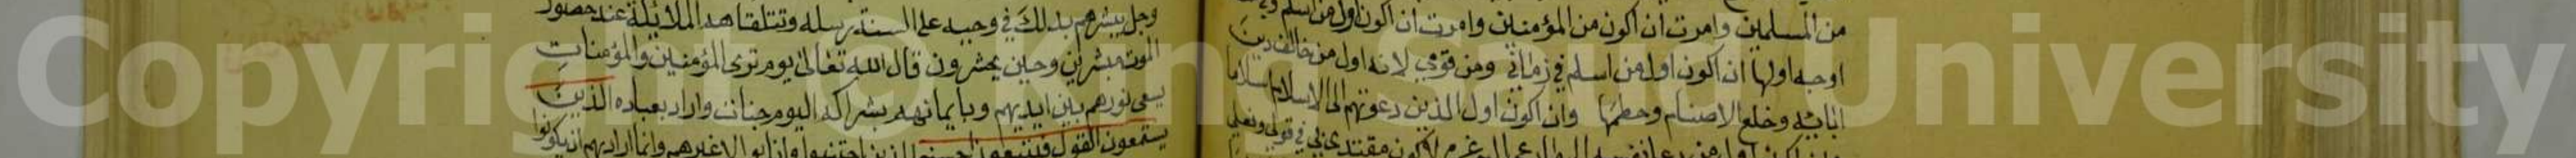 من المسلمين وامرت ان اكون من المؤمنين وامرت ان اكون اول من اسلم
اوجه اولها ان اكون اول من اسلم في زماني ومن قومي لانه اول من خالف دين
ابائه وخلع الاصنام وحطمها وان اكون اول الذين دعوتهم الى الاسلام اسلاما
وجل يبشرهم بذلك في وحيه على السنة رسله وتتلقاهم الملائكة عند حضور
الموت مبشرين وحين يحشرون قال الله تعالى يوم ترى المؤمنين والمؤمنات
يسعى نورهم بين ايديهم وبايمانهم بشراكم اليوم جنات واراد بعباده الذين
يستمعون القول فيتبعون احسنه الذين اجتنبوا وانابوا لا غيرهم وانما اراد بهم ان يكونوا
Copyright © King Saud University